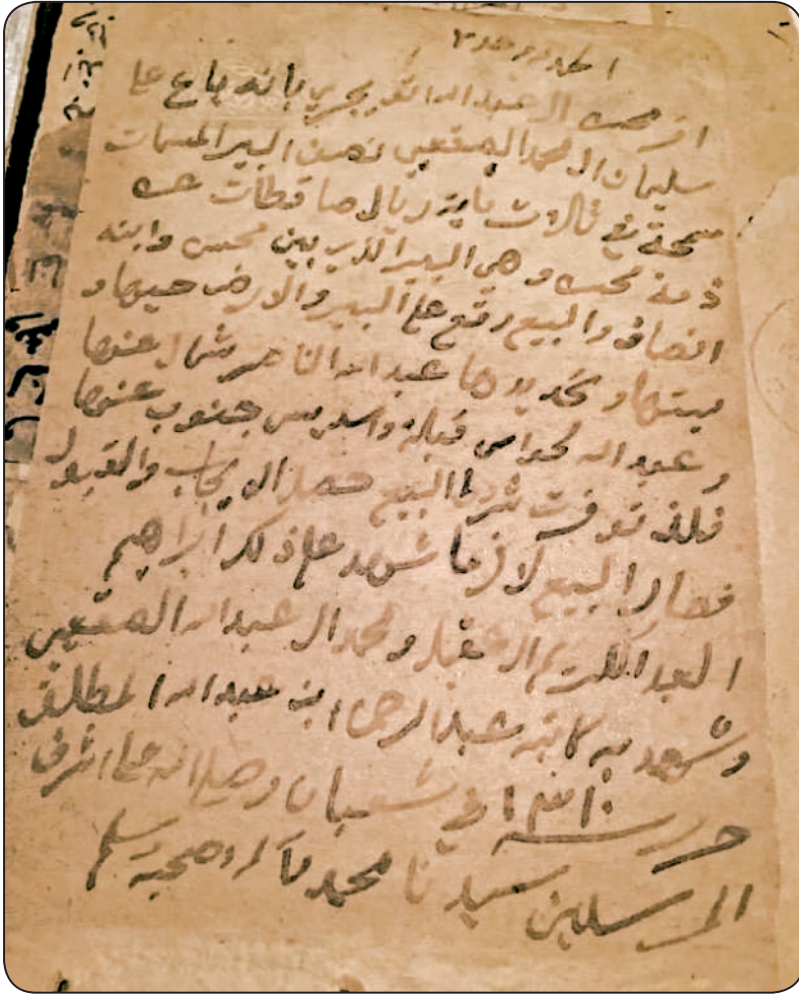 الحمد لله وحده
اقر محسن ال عبدالله التويجري بانه باع على
سليمان ال محمد الصقعبي نصف البير المسمات
سمحة في ثلاث ماية ريال صاقطات عن
ذمة محسن وهي البير الذي بين محسن وابنه
انصاف والبيع وقع على البير والارض حيها و
ميتها وتحديدها عبدالله الناصر شمال عنها
وعبدالله قبلة والسديس جنوب عنها
فلذى توفرت شروط البيع حصل الايجاب والقبول
فصار البيع لازما شهد على ذلك ابراهيم
العبدالكريم ال عقيل ومحمد ال عبدالله الصقعبي
وشهد به كاتبه عبدالرحمن ابن عبدالله المطلق
حرر سنة في شعبان وصلى الله على اشرف
المرسلين سيدنا محمد وآله وصحبه وسلم